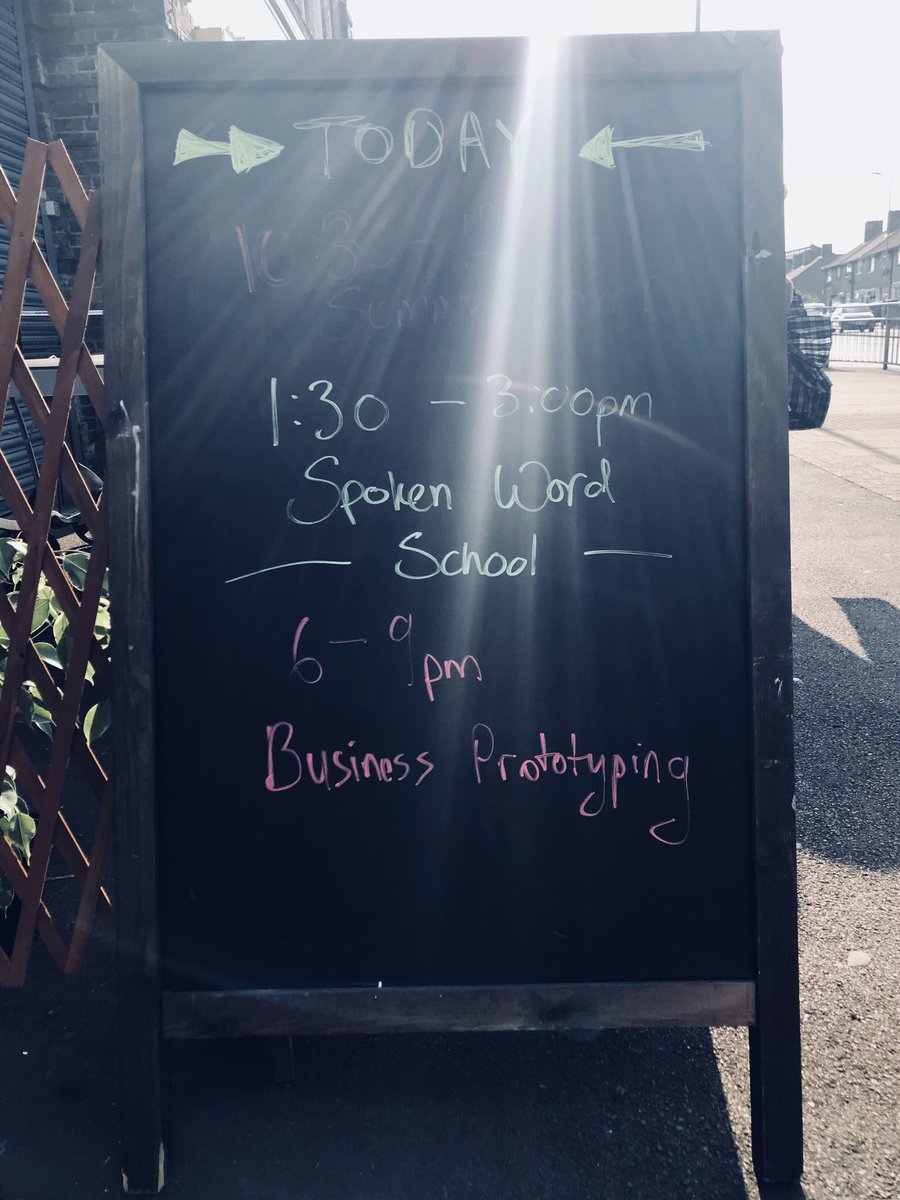 TODAY
10:30 -
1:30 - 3:00pm
Spoken Word
School
6 - 9pm
Business Prototyping